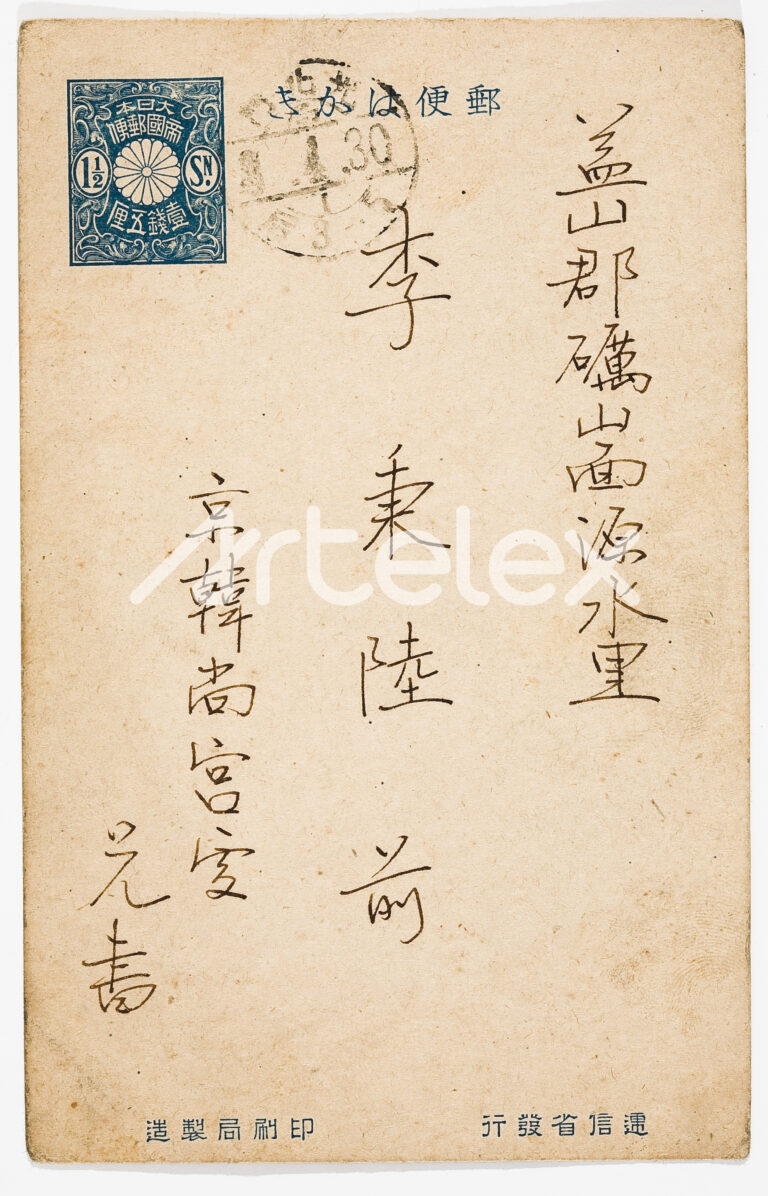 郵便はがき
大日本
帝國郵便
1½ SN.
壹錢五厘
4.30
益山郡礪山面源水里
李秉陸 前
京韓尚宮家
兄書
Artelex
遞信省發行
印刷局製造